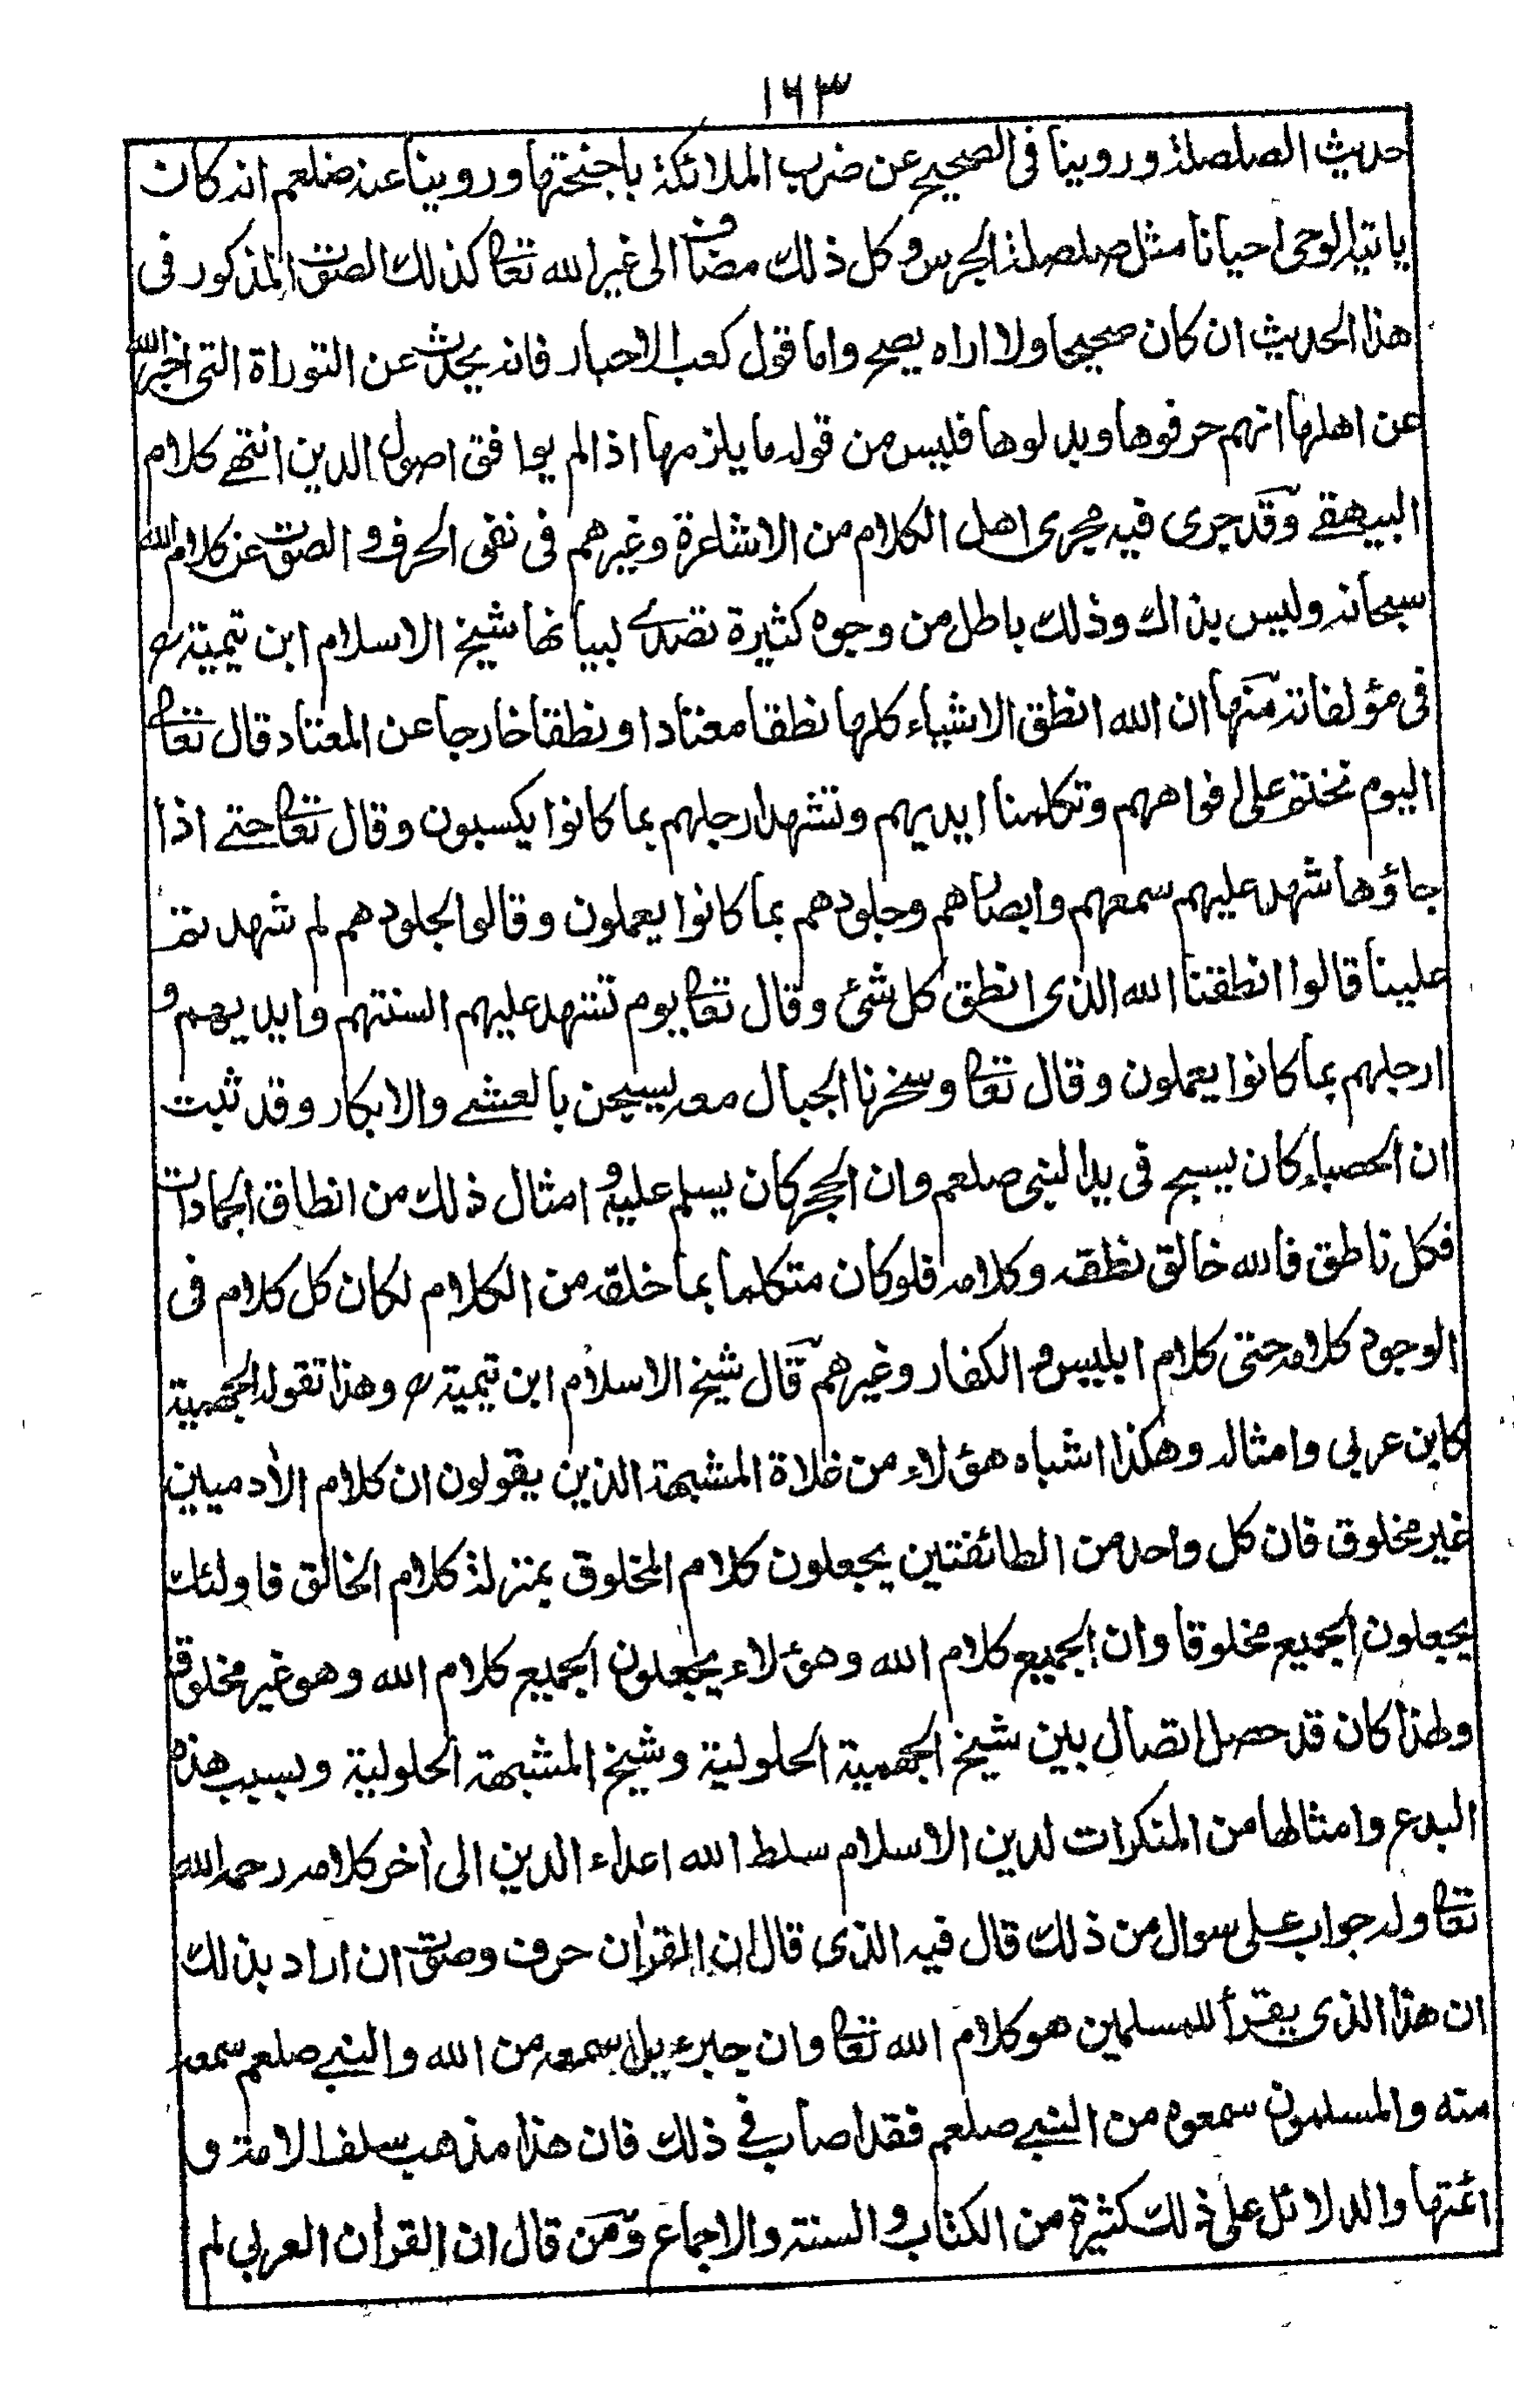 ١٦٣
حديث الصلصلة وروينا فى الصحيح عن ضرب الملائكة باجنحتها وروينا عنه صلعم انه كان
ياتيه الوحى احيانا مثل صلصلة الجرس وكل ذلك مضاف الى غير الله تعالى كذلك الصوت المذكور فى
هذا الحديث ان كان صحيحا ولا اراه يصح واما قول كعب الاحبار فانه يحدث عن التوراة التى اخبر الله
عن اهلها انهم حرفوها وبدلوها فليس من قوله ما يلزمها اذا لم يوافق اصول الدين انتهى كلام
البيهقے وقد جرى فيه مجرى اهل الكلام من الاشاعرة وغيرهم فى نفى الحرف و الصوت عن كلام الله
سبحانه وليس بذاك وذلك باطل من وجوه كثيرة تصدے لبيانها شيخ الاسلام ابن تيمية رح
فى مؤلفاته منها ان الله انطق الاشياء كلها نطقا معتادا ونطقا خارجا عن المعتاد قال تعالى
اليوم نختم على افواههم وتكلمنا ايديهم وتشهد ارجلهم بما كانوا يكسبون وقال تعالى حتے اذا
جاؤها شهد عليهم سمعهم وابصارهم وجلودهم بما كانوا يعملون وقالوا لجلودهم لم شهدتم
علينا قالوا انطقنا الله الذى انطق كل شئ وقال تعالى يوم تشهد عليهم السنتهم وايديهم و
ارجلهم بما كانوا يعملون وقال تعالى وسخرنا الجبال معه يسبحن بالعشے والابكار وقد ثبت
ان الحصباء كان يسبح فى يد النبى صلعم وان الحجر كان يسلم عليه و امثال ذلك من انطاق الجمادات
فكل ناطق فالله خالق نطقه وكلامه فلو كان متكلما بما خلقه من الكلام لكان كل كلام فى
الوجود كلامه حتى كلام ابليس و الكفار وغيرهم قال شيخ الاسلام ابن تيمية رح وهذا تقوله الجهمية
كابن عربى وامثاله وهكذا اشباه هؤلاء من غلاة المشبهة الذين يقولون ان كلام الأدميين
غير مخلوق فان كل واحد من الطائفتين يجعلون كلام المخلوق بمنزلة كلام الخالق فاولئك
يجعلون الجميع مخلوقا وان الجميع كلام الله وهؤلاء يجعلون الجميع كلام الله وهو غير مخلوق
ولهذا كان قد حصل اتصال بين شيخ الجهمية الحلولية وشيخ المشبهة الحلولية وبسبب هذه
البدع وامثالها من المنكرات لدين الاسلام سلط الله اعداء الدين الى أخر كلامه رحمه الله
تعالى وله جواب على سوال من ذلك قال فيه الذى قال ان القرأن حرف وصوت ان اراد بذلك
ان هذا الذى يقرأ للمسلمين هو كلام الله تعالى وان جبرءيل سمعه من الله والنبے صلعم سمعه
منه والمسلمون سمعوه من النبے صلعم فقد اصاب فے ذلك فان هذا مذهب سلف الامة و
ائمتها والدلائل على ذلك كثيرة من الكتاب و السنة والاجماع ومن قال ان القرأن العربى لم